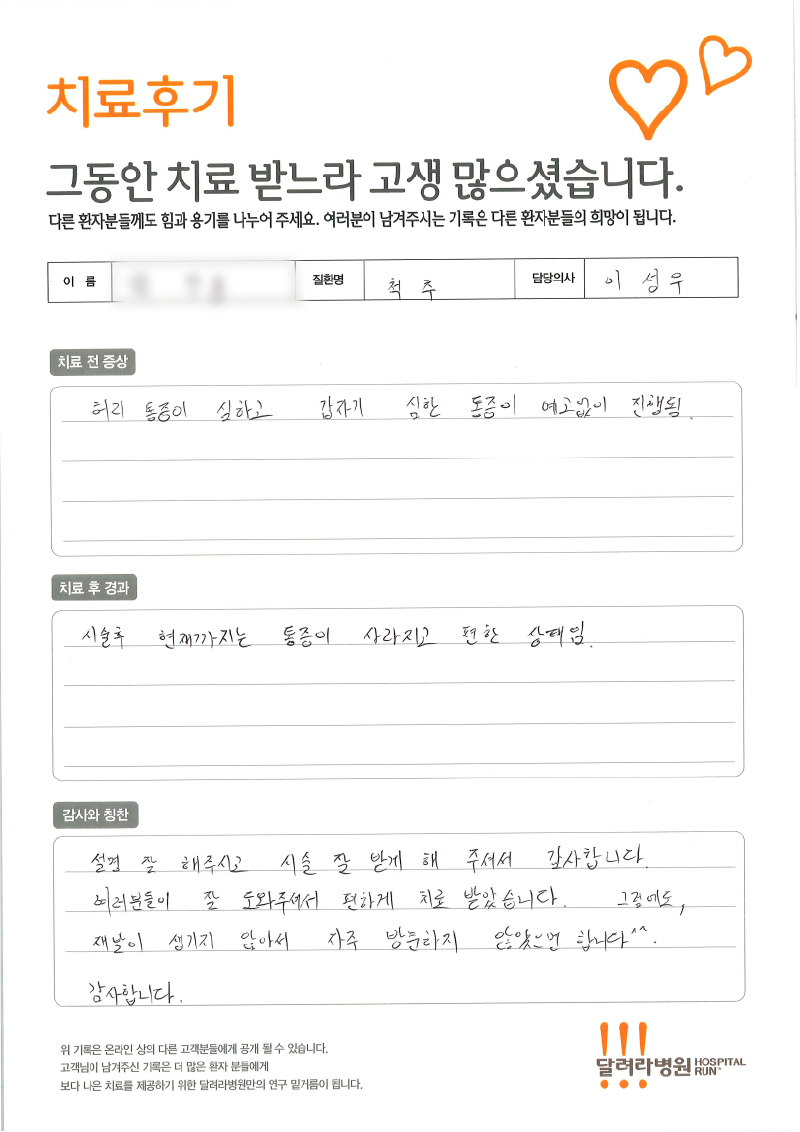 치료후기
그동안 치료 받느라 고생 많으셨습니다.
다른 환자분들께도 힘과 용기를 나누어 주세요. 여러분이 남겨주시는 기록은 다른 환자분들의 희망이 됩니다.
이 름 질환명 척 추 담당의사 이 성 우
치료 전 증상
허리 통증이 심하고 갑자기 심한 통증이 예고없이 진행됨.
치료 후 경과
시술후 현재까지는 통증이 사라지고 편한 상태임.
감사와 칭찬
설명 잘 해주시고 시술 잘 받게 해 주셔서 감사합니다.
여러분들이 잘 도와주셔서 편하게 치료 받았습니다. 그럼에도,
재발이 생기지 않아서 자주 방문하지 않았으면 합니다^^.
감사합니다.
위 기록은 온라인 상의 다른 고객분들에게 공개 될 수 있습니다.
고객님이 남겨주신 기록은 더 많은 환자 분들에게
보다 나은 치료를 제공하기 위한 달려라병원만의 연구 밑거름이 됩니다.
!!!
달려라병원 HOSPITAL RUN™